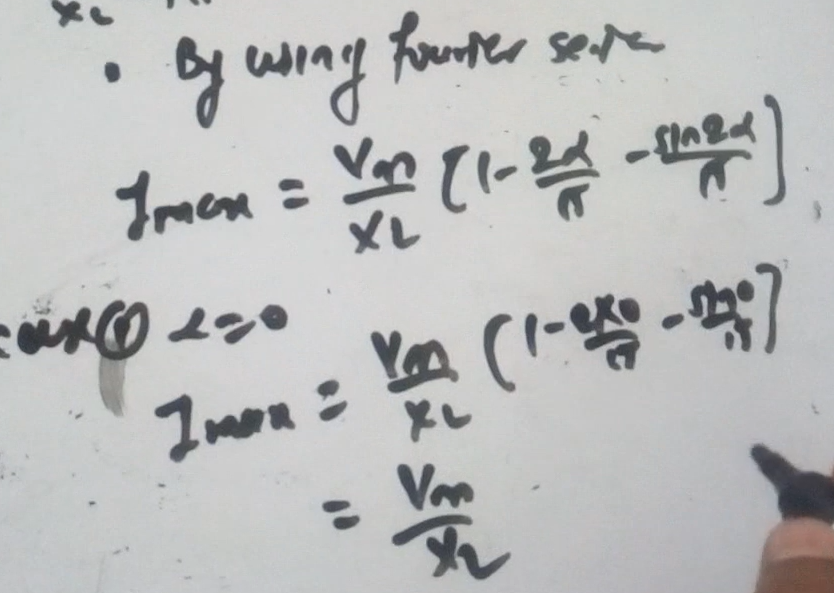 X_L
• By using fourier series
I_max = V_m/X_L [1 - 2α/π - sin2α/π]
case ① α = 0
I_max = V_m/X_L [1 - 2×0/π - sin0/π]
= V_m/X_L